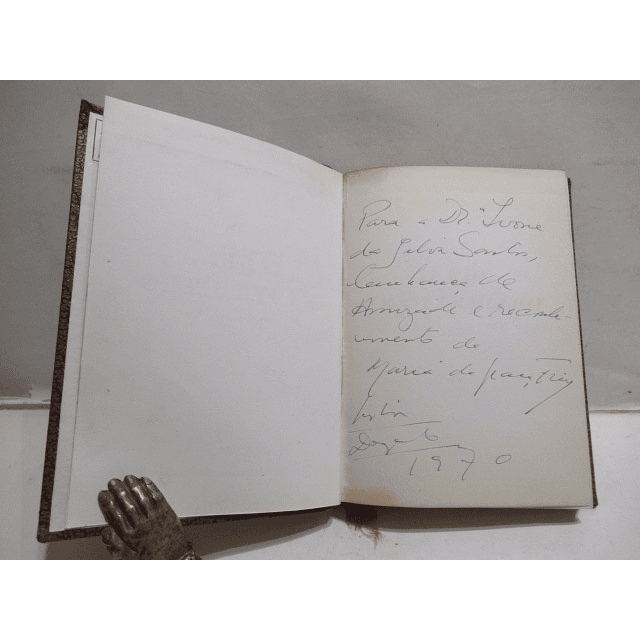 Para a Dr.ª Ivone
da Silva Santos,
lembrança de
Amizade e reconhe-
cimento de
Maria da Graça Freire
Lisboa
1970